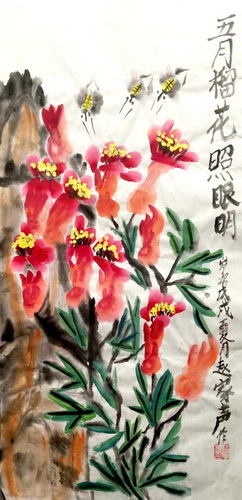 五月榴花照眼明
岁次戊戌夏月赵家声作